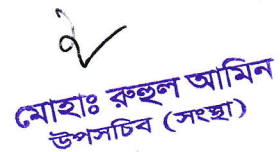 মোহাঃ রুহুল আমিন
উপসচিব (সংস্থা)